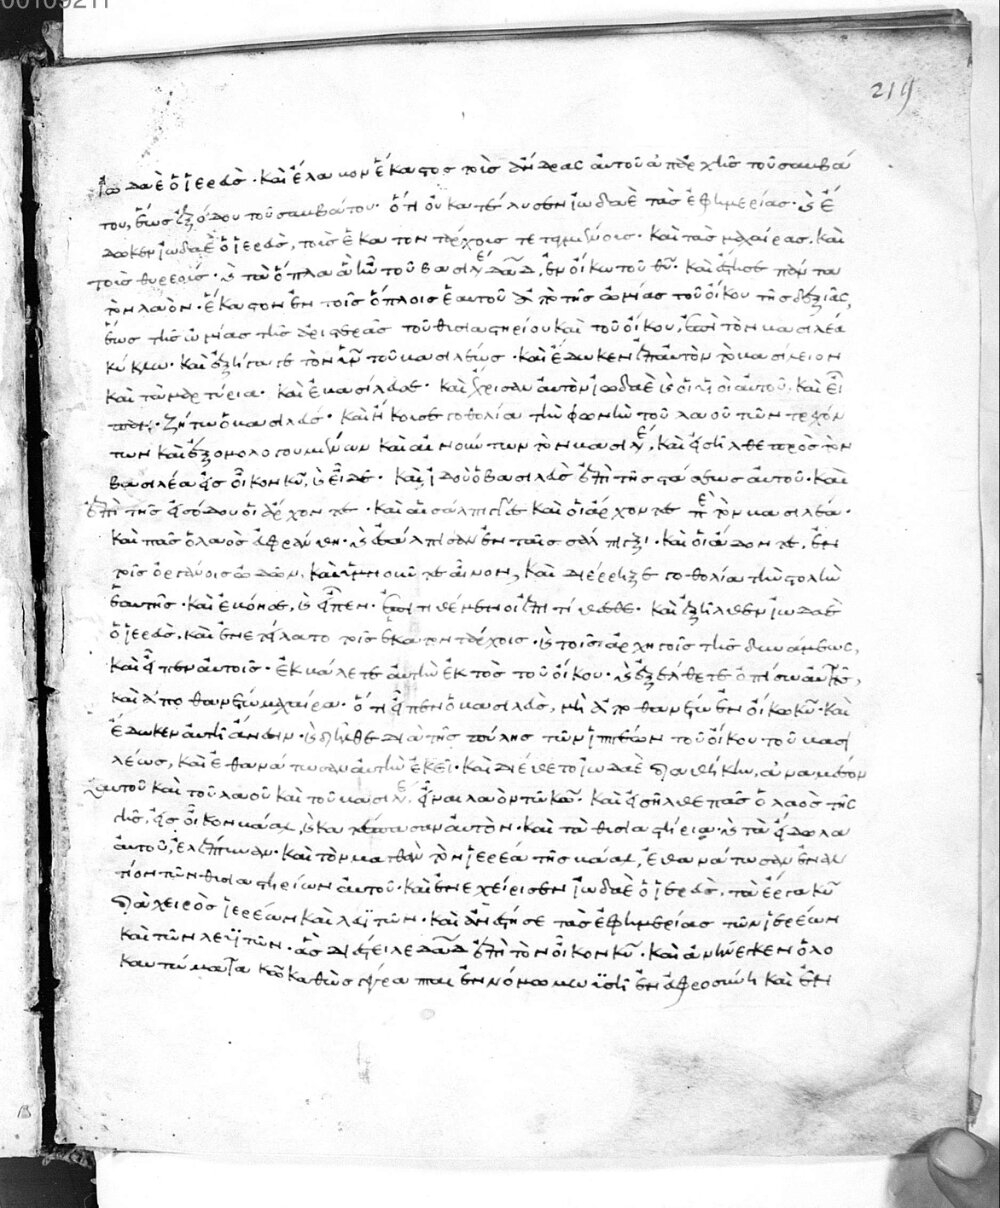 00109211
219
ἰωδαὲ ὁ ἱερεὺς · καὶ ἔλαβον ἕκαστος τοὺς ἄνδρας αὐτοῦ ἀπ' ἀρχῆς τοῦ σαββά
του, ἕως ἐξόδου τοῦ σαββάτου · ὅτι οὐ κατέλυσεν ἰωδαὲ τὰς ἐφημερίας · καὶ ἔ
δωκεν ἰωδαὲ ὁ ἱερεὺς, τοῖς ἑκατοντάρχοις τὰς μαχαίρας, καὶ
τοὺς θυρεούς · καὶ τὰ ὅπλα ἃ ἦν τοῦ βασιλέ δαδ, ἐν οἴκω τοῦ θυ · καὶ ἔστησε πάντα
τὸν λαὸν · ἕκαστον ἐν τοῖς ὅπλοις ἑαυτοῦ ἀπὸ τῆς ὠμίας τοῦ οἴκου τῆς δεξιᾶς,
ἕως τῆς ὠμίας τῆς ἀριστερᾶς τοῦ θυσιαστηρίου καὶ τοῦ οἴκου, ἐπὶ τὸν βασιλέα
κύκλω · καὶ ἐξήγαγε τὸν υἱὸν τοῦ βασιλέως · καὶ ἔδωκεν ἐπ' αὐτὸν τὸ βασίλειον
καὶ τὰ μαρτύρια · καὶ ἐβασίλευσε · καὶ ἔχρισαν αὐτὸν ἰωδαὲ καὶ οἱ υἱοὶ αὐτοῦ, καὶ εἶ
πον · ζήτω ὁ βασιλεὺς · καὶ ἤκουσε γοθολία τὴν φωνὴν τοῦ λαοῦ τῶν τρεχόν
των καὶ ἐξομολογουμένων καὶ αἰνούντων τὸν βασιλέ, καὶ εἰσῆλθε πρὸς τὸν
βασιλέα εἰς οἶκον κυ, καὶ εἶδε · καὶ ἰδοὺ ὁ βασιλεὺς ἐπὶ τῆς στάσεως αὐτοῦ · καὶ
ἐπὶ τῆς εἰσόδου οἱ ἄρχοντες · καὶ αἱ σάλπιγγες καὶ οἱ ἄρχοντες περὶ τὸν βασιλέα ·
καὶ πᾶς ὁ λαὸς εὐφράνθη · καὶ ἐσάλπισαν ἐν ταῖς σάλπιγξι · καὶ οἱ ἄδοντες, ἐν
τοῖς ὀργάνοις ὠδῶν, καὶ ὑμνοῦντες αἶνον, καὶ διέρρηξε γοθολία τὴν στολὴν
ἑαυτῆς · καὶ ἐβόησε, καὶ εἶπεν · ἐπιτιθέμενοι ἐπιτίθεσθε · καὶ ἐξῆλθεν ἰωδαὲ
ὁ ἱερεὺς, καὶ ἐνετείλατο τοῖς ἑκατοντάρχοις · καὶ τοῖς ἀρχηγοῖς τῆς δυνάμεως,
καὶ εἶπεν αὐτοῖς · ἐκβάλετε αὐτὴν ἐκτὸς τοῦ οἴκου · καὶ ἐξέλθετε ὀπίσω αὐτῆς,
καὶ ἀποθανέτω μαχαίρα · ὅτι εἶπεν ὁ βασιλεὺς, μὴ ἀποθανέτω ἐν οἴκω κυ · καὶ
ἔδωκεν αὐτῆ ἄνεσιν · καὶ διῆλθε διὰ τῆς πύλης τῶν ἱππέων τοῦ οἴκου τοῦ βασι
λέως, καὶ ἐθανάτωσαν αὐτὴν ἐκεῖ · καὶ διέθετο ἰωδαὲ διαθήκην, ἀναμέσον
αὐτοῦ καὶ τοῦ λαοῦ καὶ τοῦ βασιλέ, εἶναι λαὸν τῶ κω · καὶ εἰσῆλθε πᾶς ὁ λαὸς τῆς
γῆς, εἰς οἶκον βάαλ, καὶ κατέσπασαν αὐτὸν · καὶ τὰ θυσιαστήρια · καὶ τὰ εἴδωλα
αὐτοῦ, ἐλέπτυναν · καὶ τὸν ματθὰν τὸν ἱερέα τῆς βάαλ, ἐθανάτωσαν ἐναν
τίον τῶν θυσιαστηρίων αὐτοῦ · καὶ ἐνεχείρισεν ἰωδαὲ ὁ ἱερεὺς, τὰ ἔργα κυ
διὰ χειρὸς ἱερέων καὶ λευϊτῶν · καὶ ἀνέστησε τὰς ἐφημερίας τῶν ἱερέων
καὶ τῶν λευϊτῶν · ἃς διέστειλε δαδ ἐπὶ τὸν οἶκον κυ · καὶ ἀνήνεγκεν ὁλο
καυτώματα κω καθὼς γέγραπται ἐν νόμω μωϋσῆ ἐν εὐφροσύνη καὶ ἐν